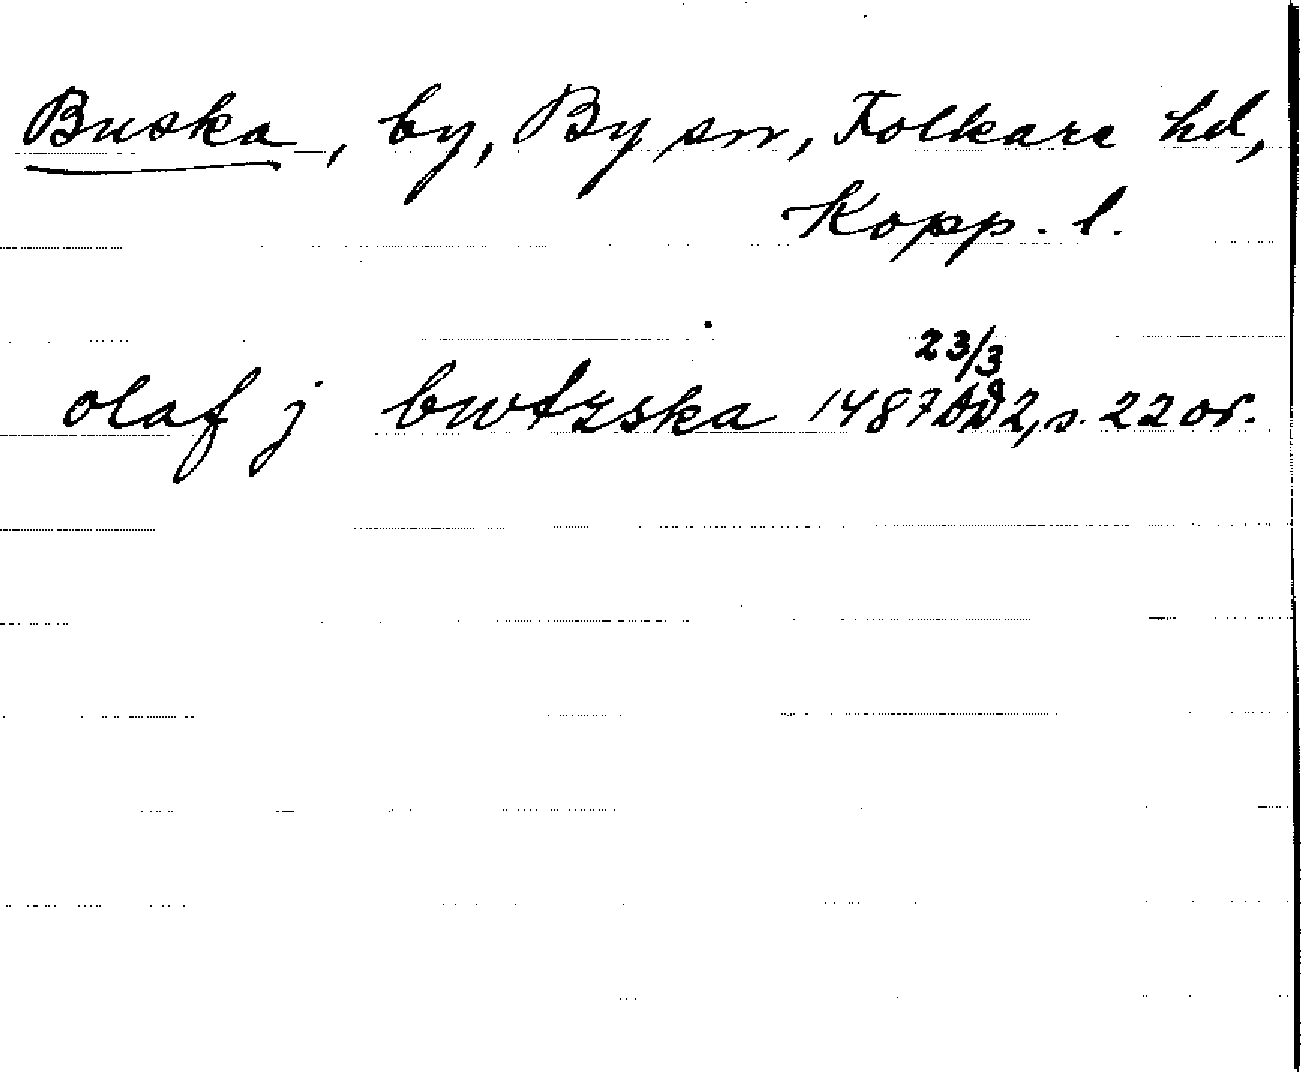 Buska, by, By sn, Folkare hd,
Kopp. l.
olaf j bwtzska 1487 23/3 DD2, s. 220r.